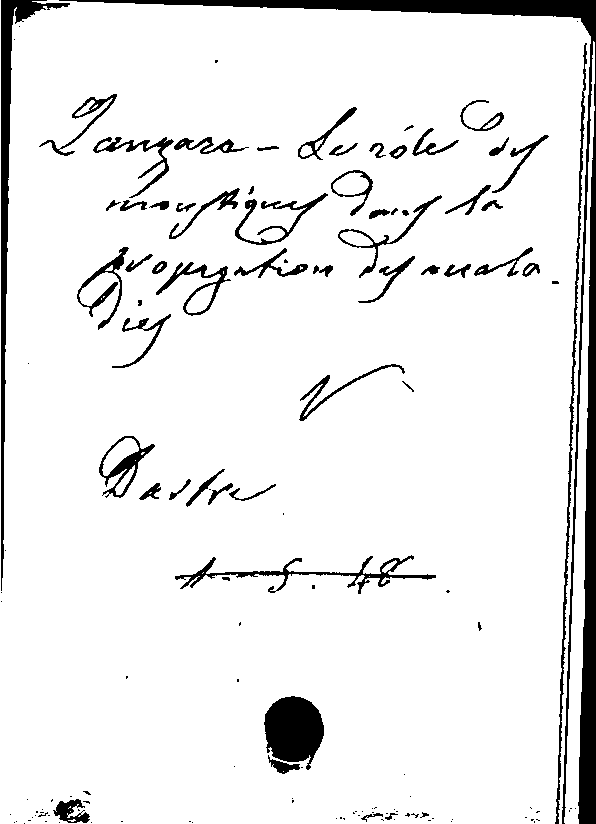 Zanzara – Le rôle des
moustiques dans la
propagation des mala-
dies
V
Dastre
1. 5. 48